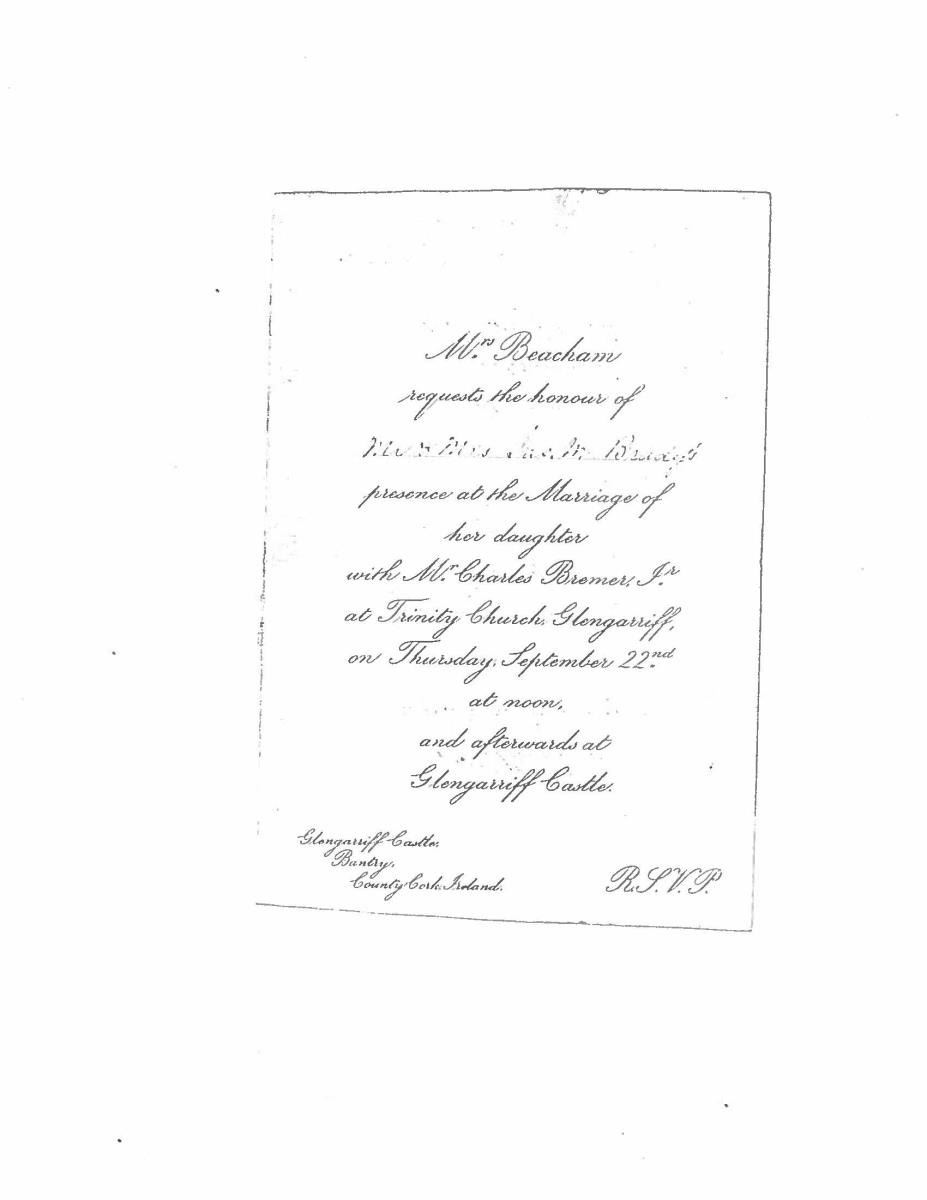 Mrs Beacham
requests the honour of
Mr & Mrs Jas. M.
presence at the Marriage of
her daughter
with Mr. Charles Bremer, Jr.
at Trinity Church, Glengarriff,
on Thursday, September 22nd
at noon,
and afterwards at
Glengarriff Castle.
Glengarriff Castle,
Bantry,
County Cork, Ireland.
R.S.V.P.